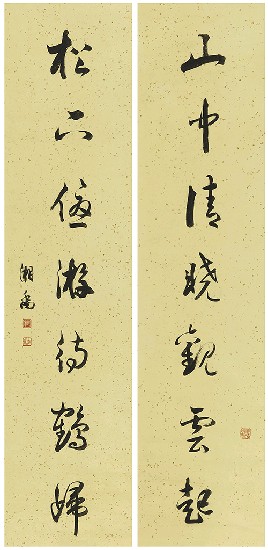 山中清曉觀雲起
松下僊游待鶴歸
湘帆